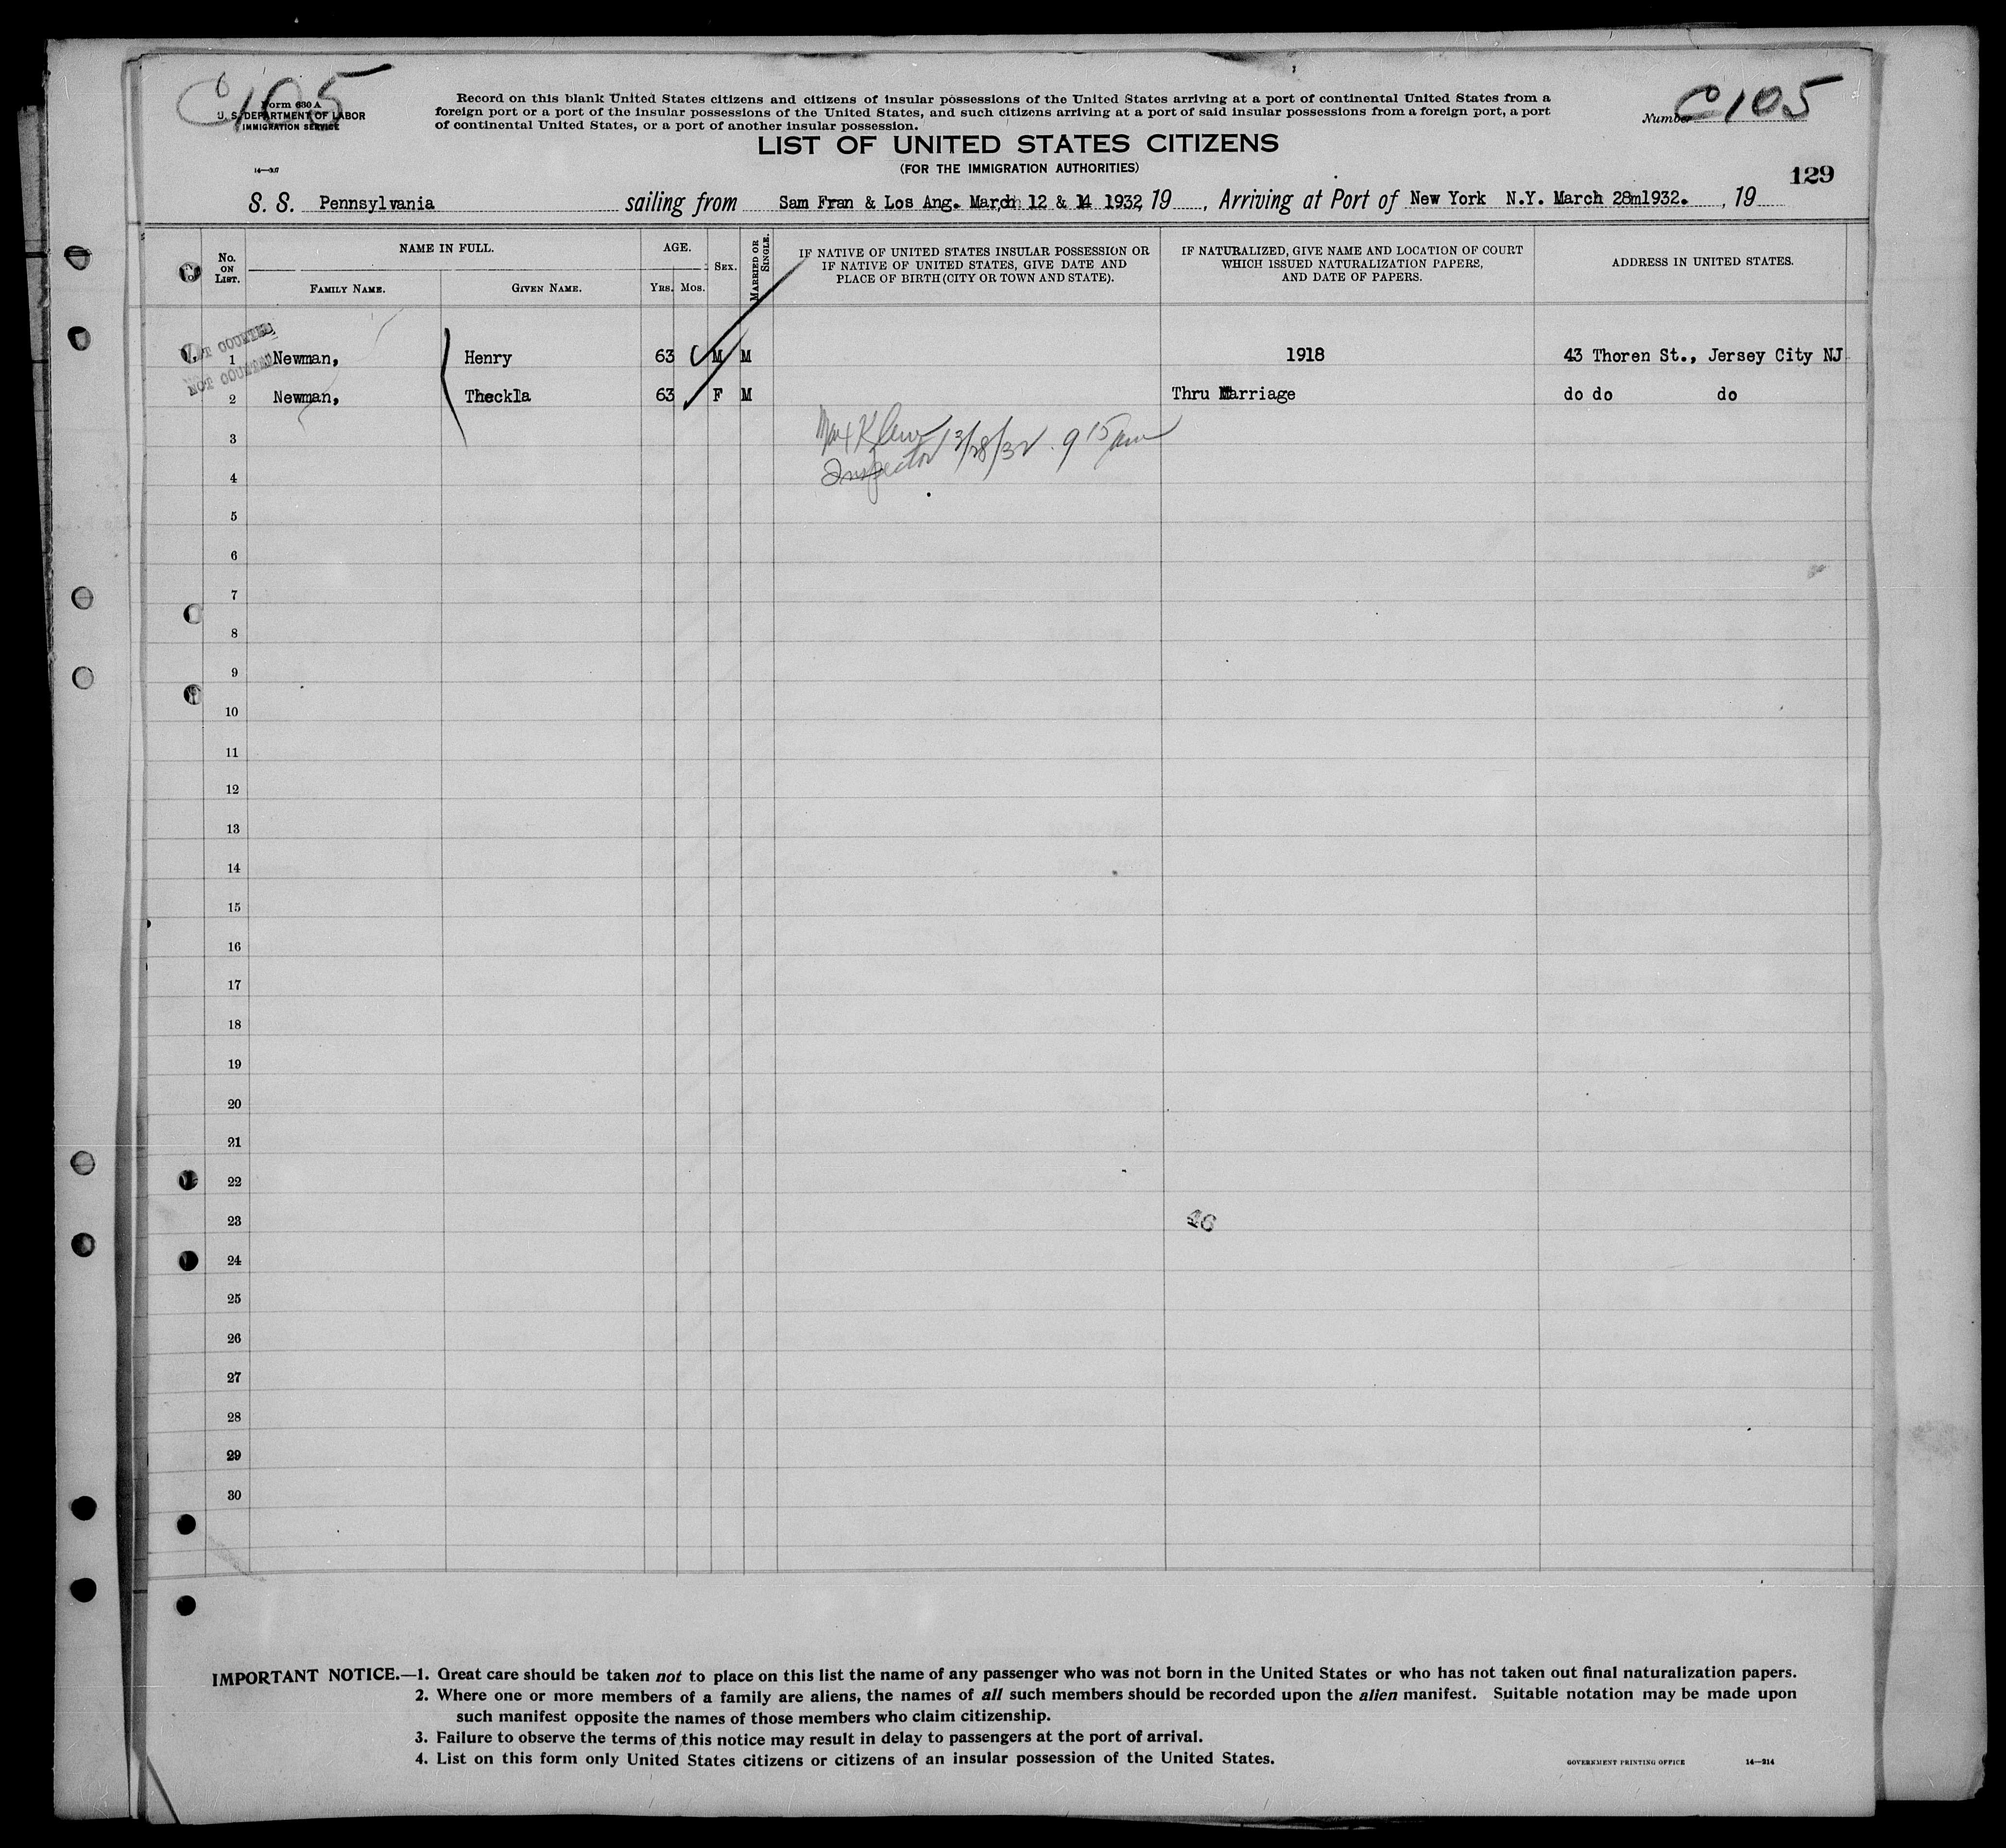 C105
Form 630 A
U. S. DEPARTMENT OF LABOR
IMMIGRATION SERVICE
Record on this blank United States citizens and citizens of insular possessions of the United States arriving at a port of continental United States from a
foreign port or a port of the insular possessions of the United States, and such citizens arriving at a port of said insular possessions from a foreign port, a port
of continental United States, or a port of another insular possession.
Number C105
LIST OF UNITED STATES CITIZENS
(FOR THE IMMIGRATION AUTHORITIES)
129
S. S. Pennsylvania sailing from Sam Fran & Los Ang. March 12 & 14 1932, 19 , Arriving at Port of New York N.Y. March 28m1932. , 19
No. ON LIST.
NAME IN FULL.
FAMILY NAME.
GIVEN NAME.
AGE.
YRS. MOS.
SEX.
MARRIED OR SINGLE.
IF NATIVE OF UNITED STATES INSULAR POSSESSION OR
IF NATIVE OF UNITED STATES, GIVE DATE AND
PLACE OF BIRTH (CITY OR TOWN AND STATE).
IF NATURALIZED, GIVE NAME AND LOCATION OF COURT
WHICH ISSUED NATURALIZATION PAPERS,
AND DATE OF PAPERS.
ADDRESS IN UNITED STATES.
NOT COUNTED
1 Newman, Henry 63 M M 1918 43 Thoren St., Jersey City NJ
NOT COUNTED
2 Newman, Theckla 63 F M Thru Marriage do do do
3
Inspector 3/28/32 9 15 am
4
5
6
7
8
9
10
11
12
13
14
15
16
17
18
19
20
21
22
23
46
24
25
26
27
28
29
30
IMPORTANT NOTICE.—1. Great care should be taken not to place on this list the name of any passenger who was not born in the United States or who has not taken out final naturalization papers.
2. Where one or more members of a family are aliens, the names of all such members should be recorded upon the alien manifest. Suitable notation may be made upon
such manifest opposite the names of those members who claim citizenship.
3. Failure to observe the terms of this notice may result in delay to passengers at the port of arrival.
4. List on this form only United States citizens or citizens of an insular possession of the United States.
GOVERNMENT PRINTING OFFICE 14—214